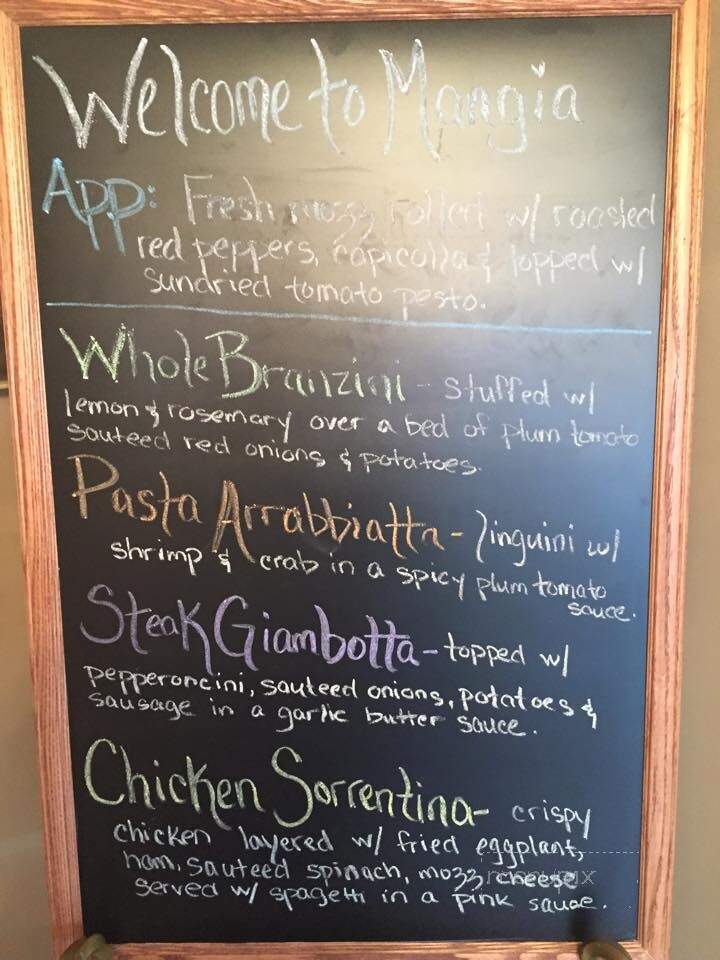 Welcome to Mangia
App: Fresh mozz rolled w/ roasted
red peppers, capicolla & topped w/
sundried tomato pesto.
Whole Branzini - stuffed w/
lemon & rosemary over a bed of plum tomato
sauteed red onions & potatoes.
Pasta Arrabbiatta - linguini w/
shrimp & crab in a spicy plum tomato
sauce.
Steak Giambotta - topped w/
pepperoncini, sauteed onions, potatoes &
sausage in a garlic butter sauce.
Chicken Sorrentina - crispy
chicken layered w/ fried eggplant,
ham, sauteed spinach, mozz cheese
served w/ spagetti in a pink sauce.